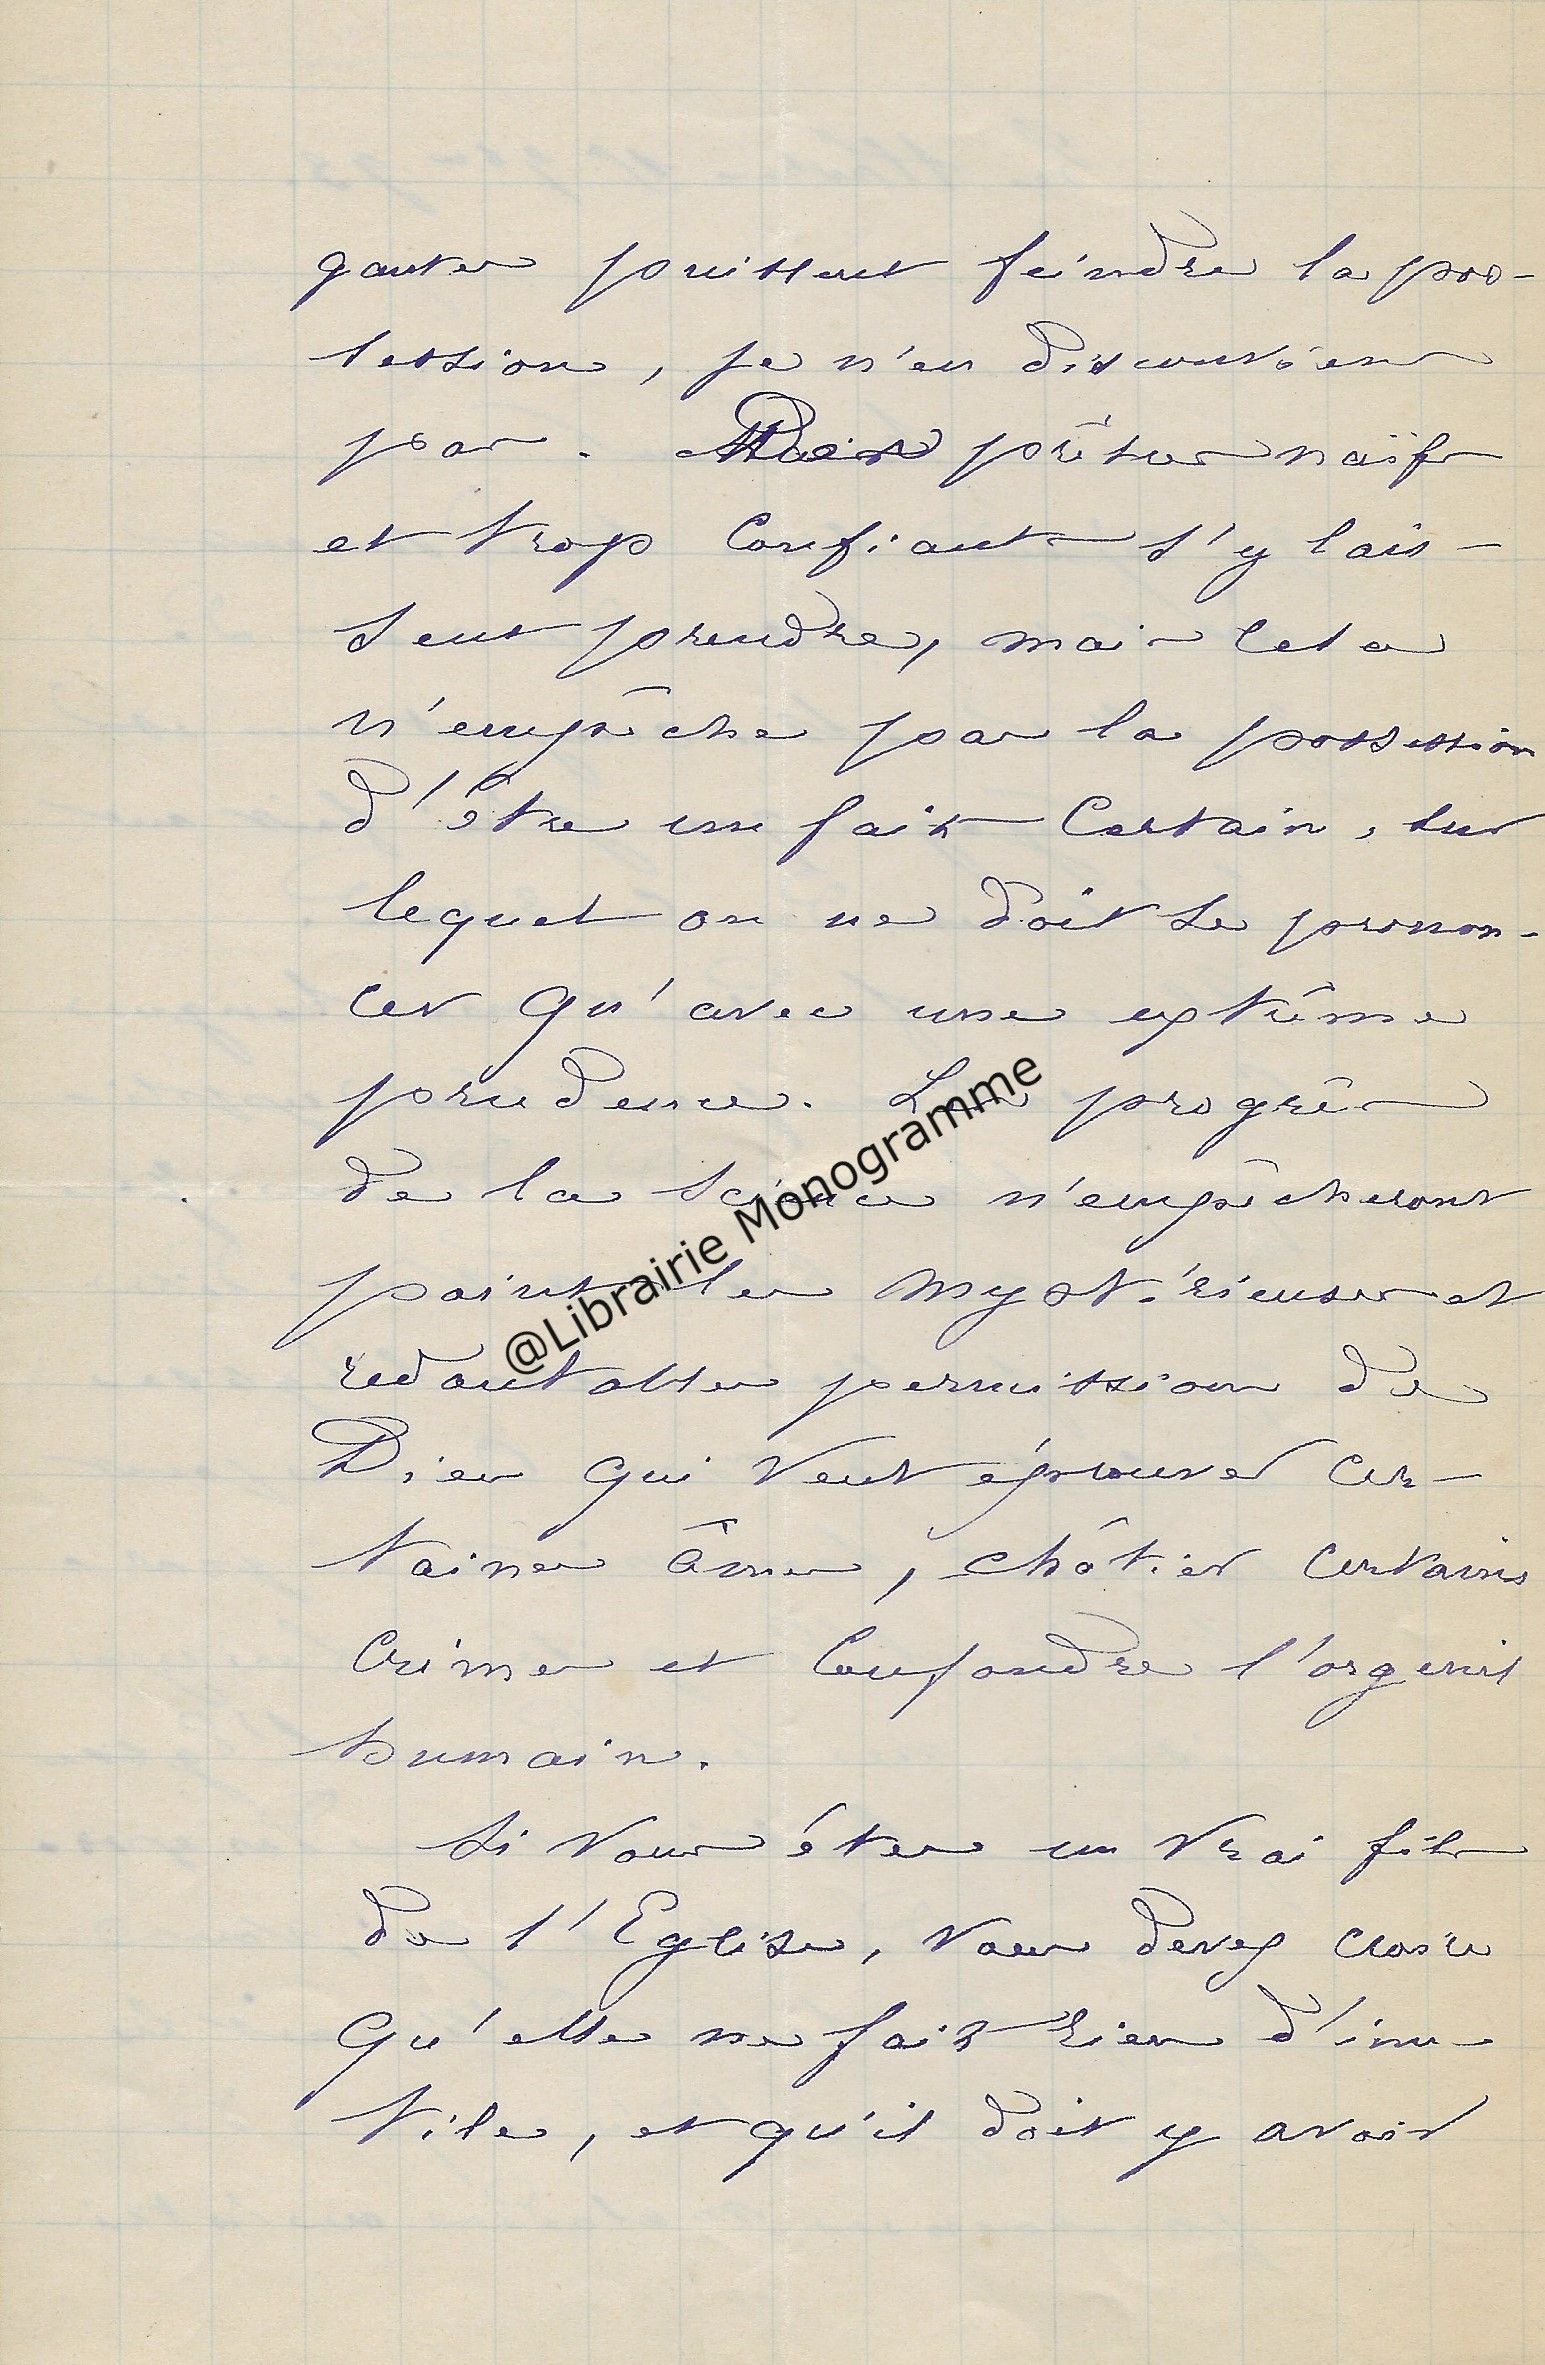 gantes puissent feindre la pos-
session, je n'en disconviens
pas. Des prêtres naïfs
et trop confiants s'y lais-
sent prendre, mais cela
n'empêche pas la possession
d'être un fait certain, sur
lequel on ne doit se pronon-
cer qu'avec une extrême
prudence. Les progrès
de la science n'empêcheront
point les mystérieuses et
redoutables permissions de
Dieu qui veut éprouver cer-
taines âmes, châtier certains
crimes et confondre l'orgueil
humain.
Si vous êtes un vrai fils
de l'Eglise, vous devez croire
qu'elle ne fait rien d'inu-
tile, et qu'il doit y avoir
@Librairie Monogramme